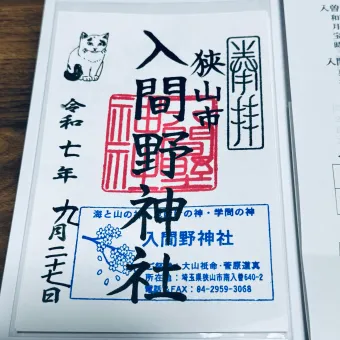 奉拝
狭山市
入間野神社
令和七年 九月二十七日
入間野神社
海と山の神・学問の神
入間野神社
大山祇命・菅原道真
所在地：埼玉県狭山市南入曽640-2
電話&FAX：04-2959-3068